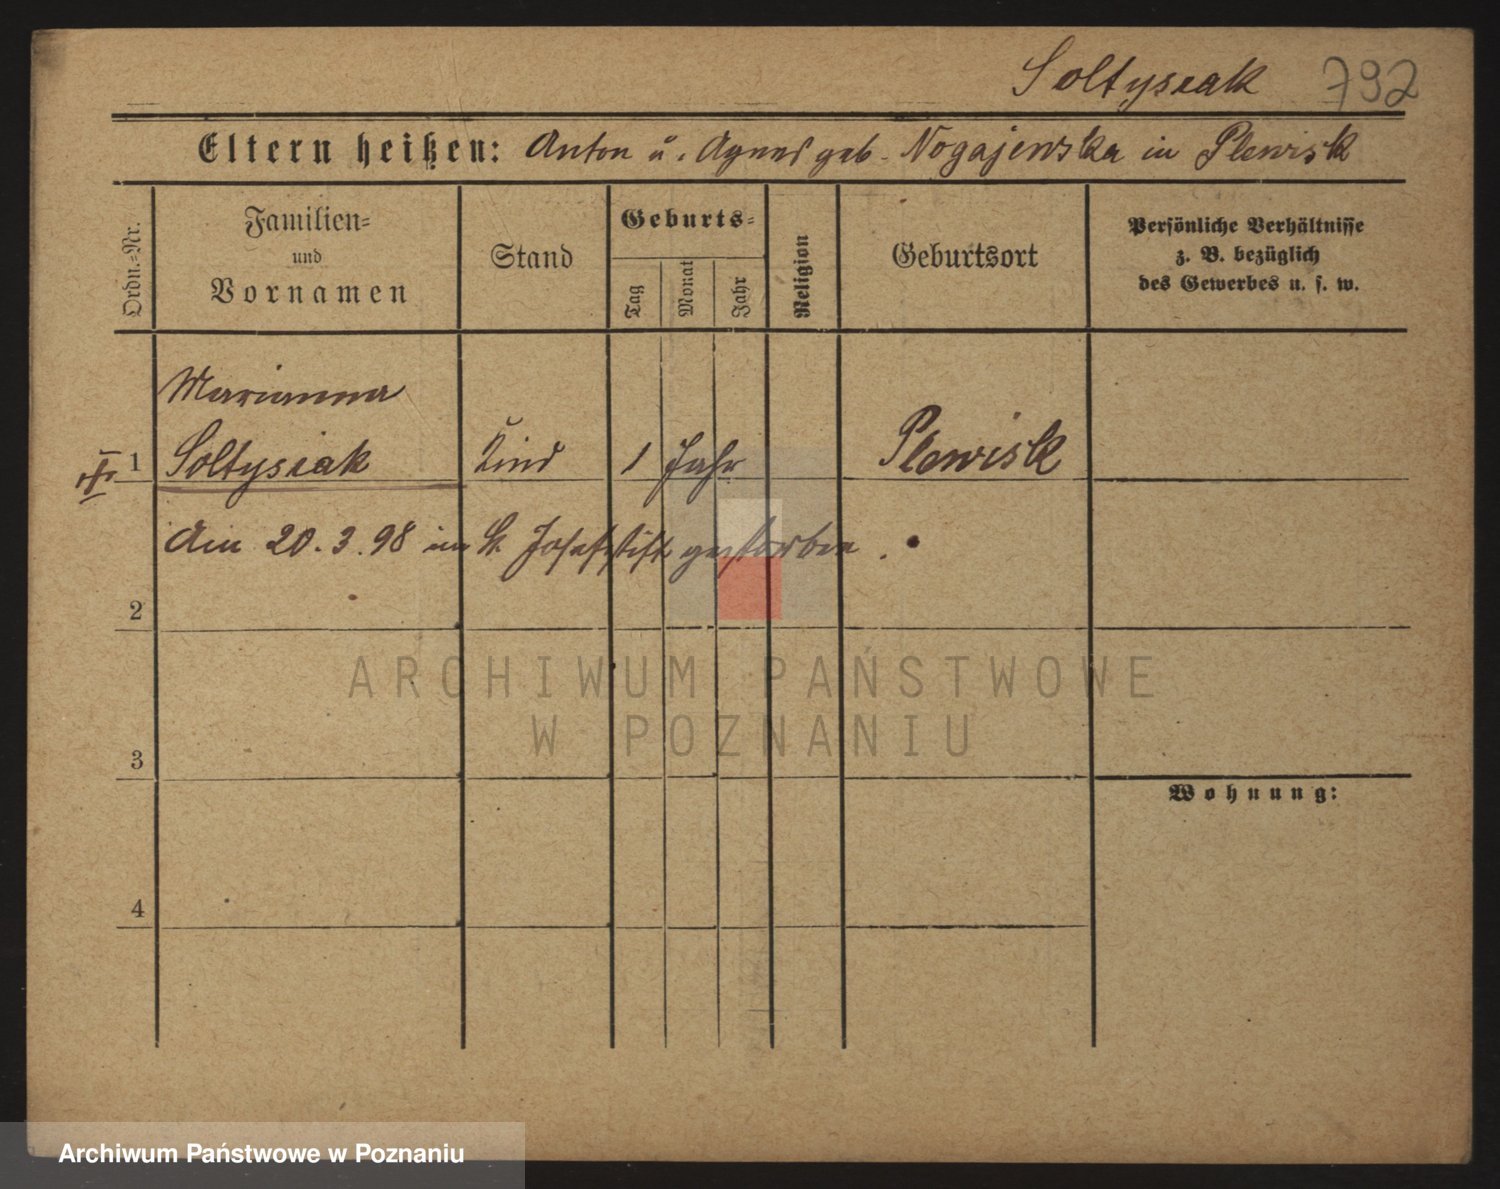 Soltysiak 792
Eltern heißen: Anton u. Agnes geb. Nogajewska in Plewisk
Ordn.-Nr.
Familien-
und
Vornamen
Stand
Geburts-
Tag
Monat
Jahr
Religion
Geburtsort
Persönliche Verhältnisse
z. B. bezüglich
des Gewerbes u. s. w.
Marianna
1 Soltysiak Kind 1 Jahr Plewisk
Am 20.3.98 im St. Josefstift gestorben.
2
3
4
Wohnung:
ARCHIWUM PAŃSTWOWE
W POZNANIU
Archiwum Państwowe w Poznaniu